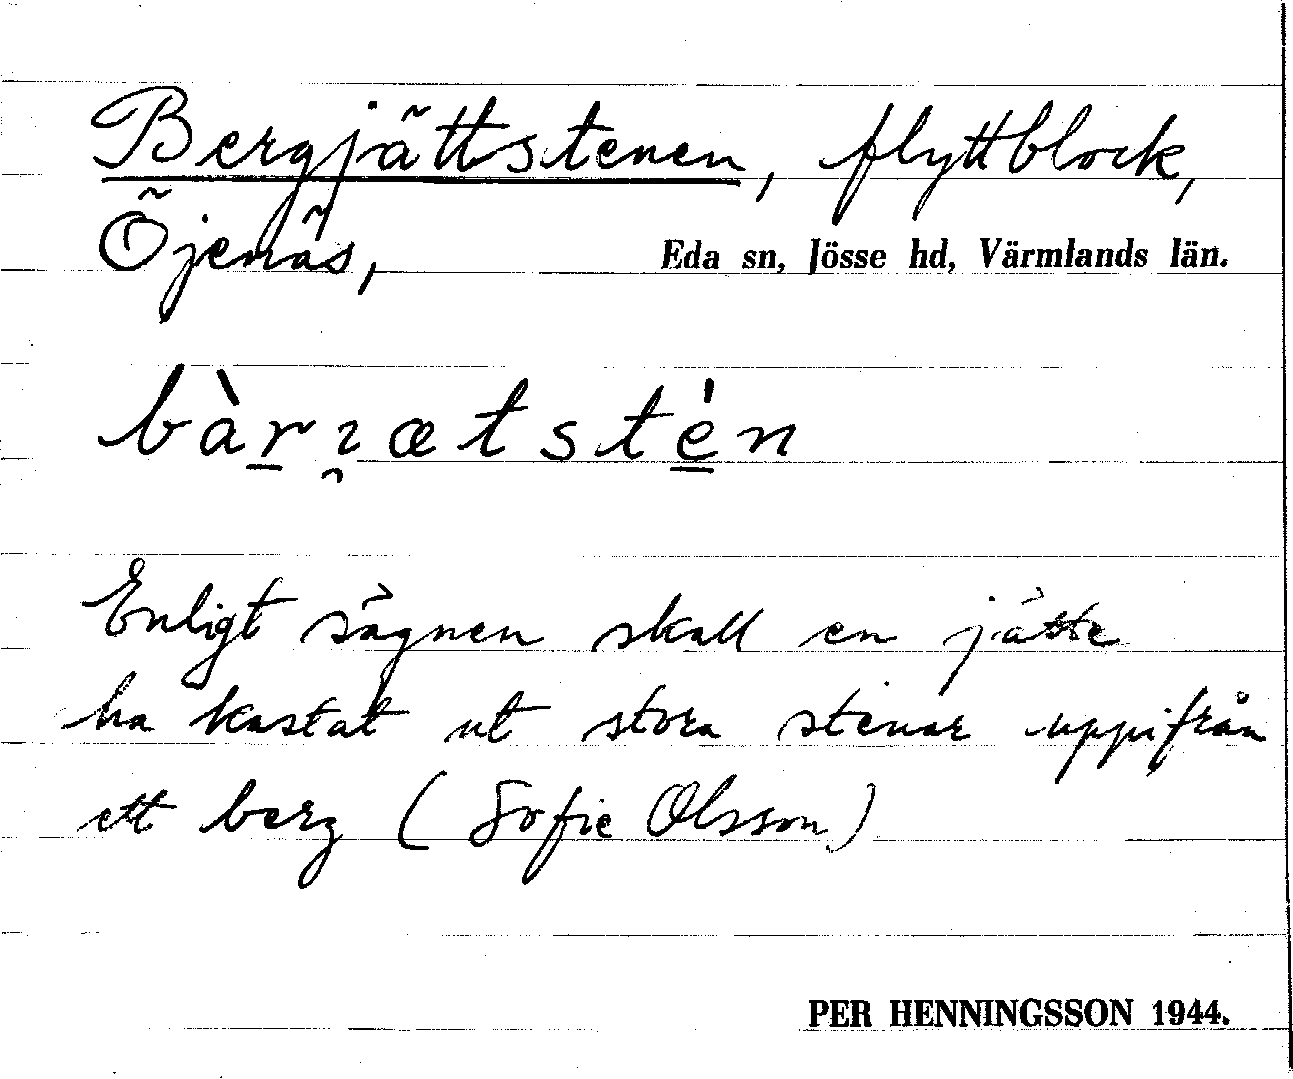 Bergjättstenen, flyttblock,
Öjenäs, Eda sn, Jösse hd, Värmlands län.
Enligt sägnen skall en jätte
ha kastat ut stora stenar uppifrån
ett berg (Sofie Olsson)
PER HENNINGSSON 1944.